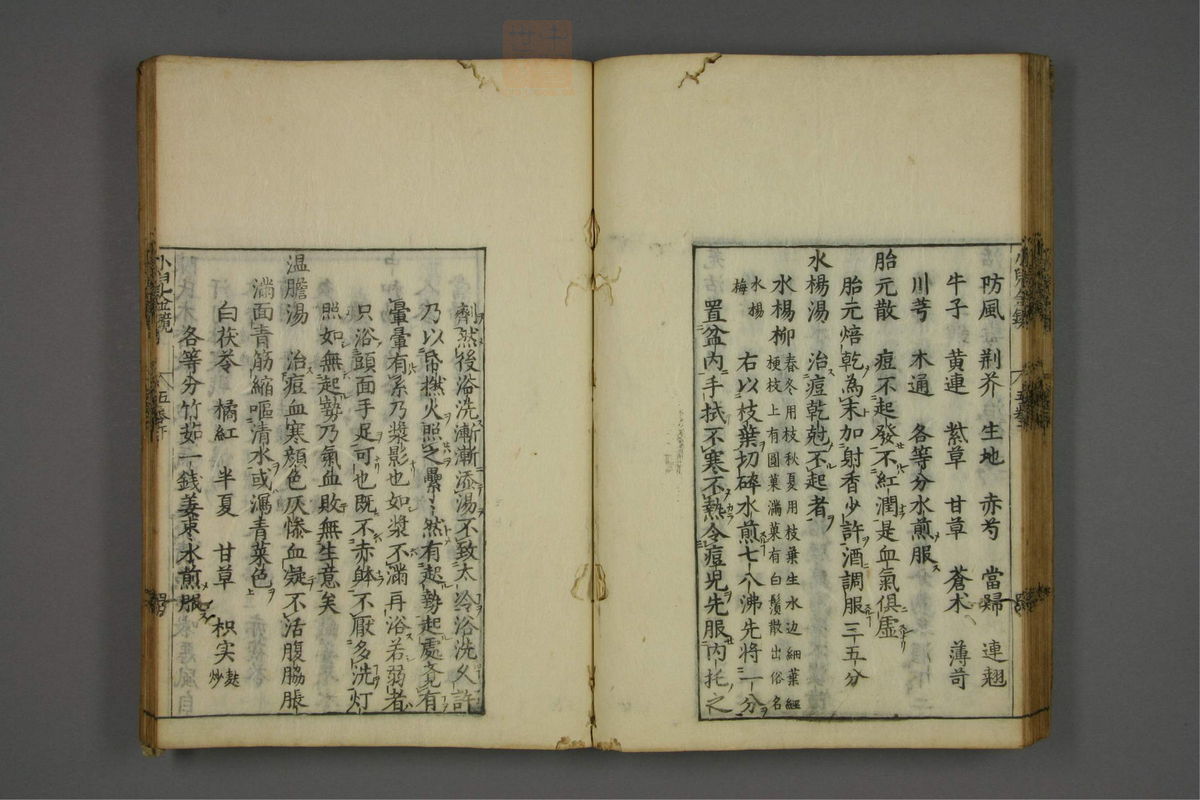 防風 荆芥 生地 赤芍 當歸 連翹
牛子 黄連 紫草 甘草 蒼朮 薄苛
川芎 木通 各等分水煎服
胎元散 痘不起發不紅潤是血氣俱虛
胎元焙乾為末加射香少許酒調服三五分
水楊湯 治痘乾尅不起者
水楊柳 春冬用枝秋夏用枝葉生水边細葉經
梗枝上有圓菓滿菓有白鬚散出俗名
水楊
梅
右以枝葉切碎水煎七八沸先將一分
置盆内手拭不寒不熱令痘児先服内托之
劑然後浴洗漸漸添湯不致太冷浴洗久許
乃以帋撚火照之纍纍然有起勢起處竟有
暈暈有系乃漿影也如漿不滿再浴若弱者
只浴頭面手足可也既不赤躰不厭多洗灯
照如無起勢乃氣血敗無生意矣
温膽湯 治痘血寒顔色灰慘血凝不活腹脇脹
滿面青筋縮嘔清水或瀉青菜色
白茯苓 橘紅 半夏 甘草 枳实 麩
炒
各等分竹茹一錢姜棗水煎服